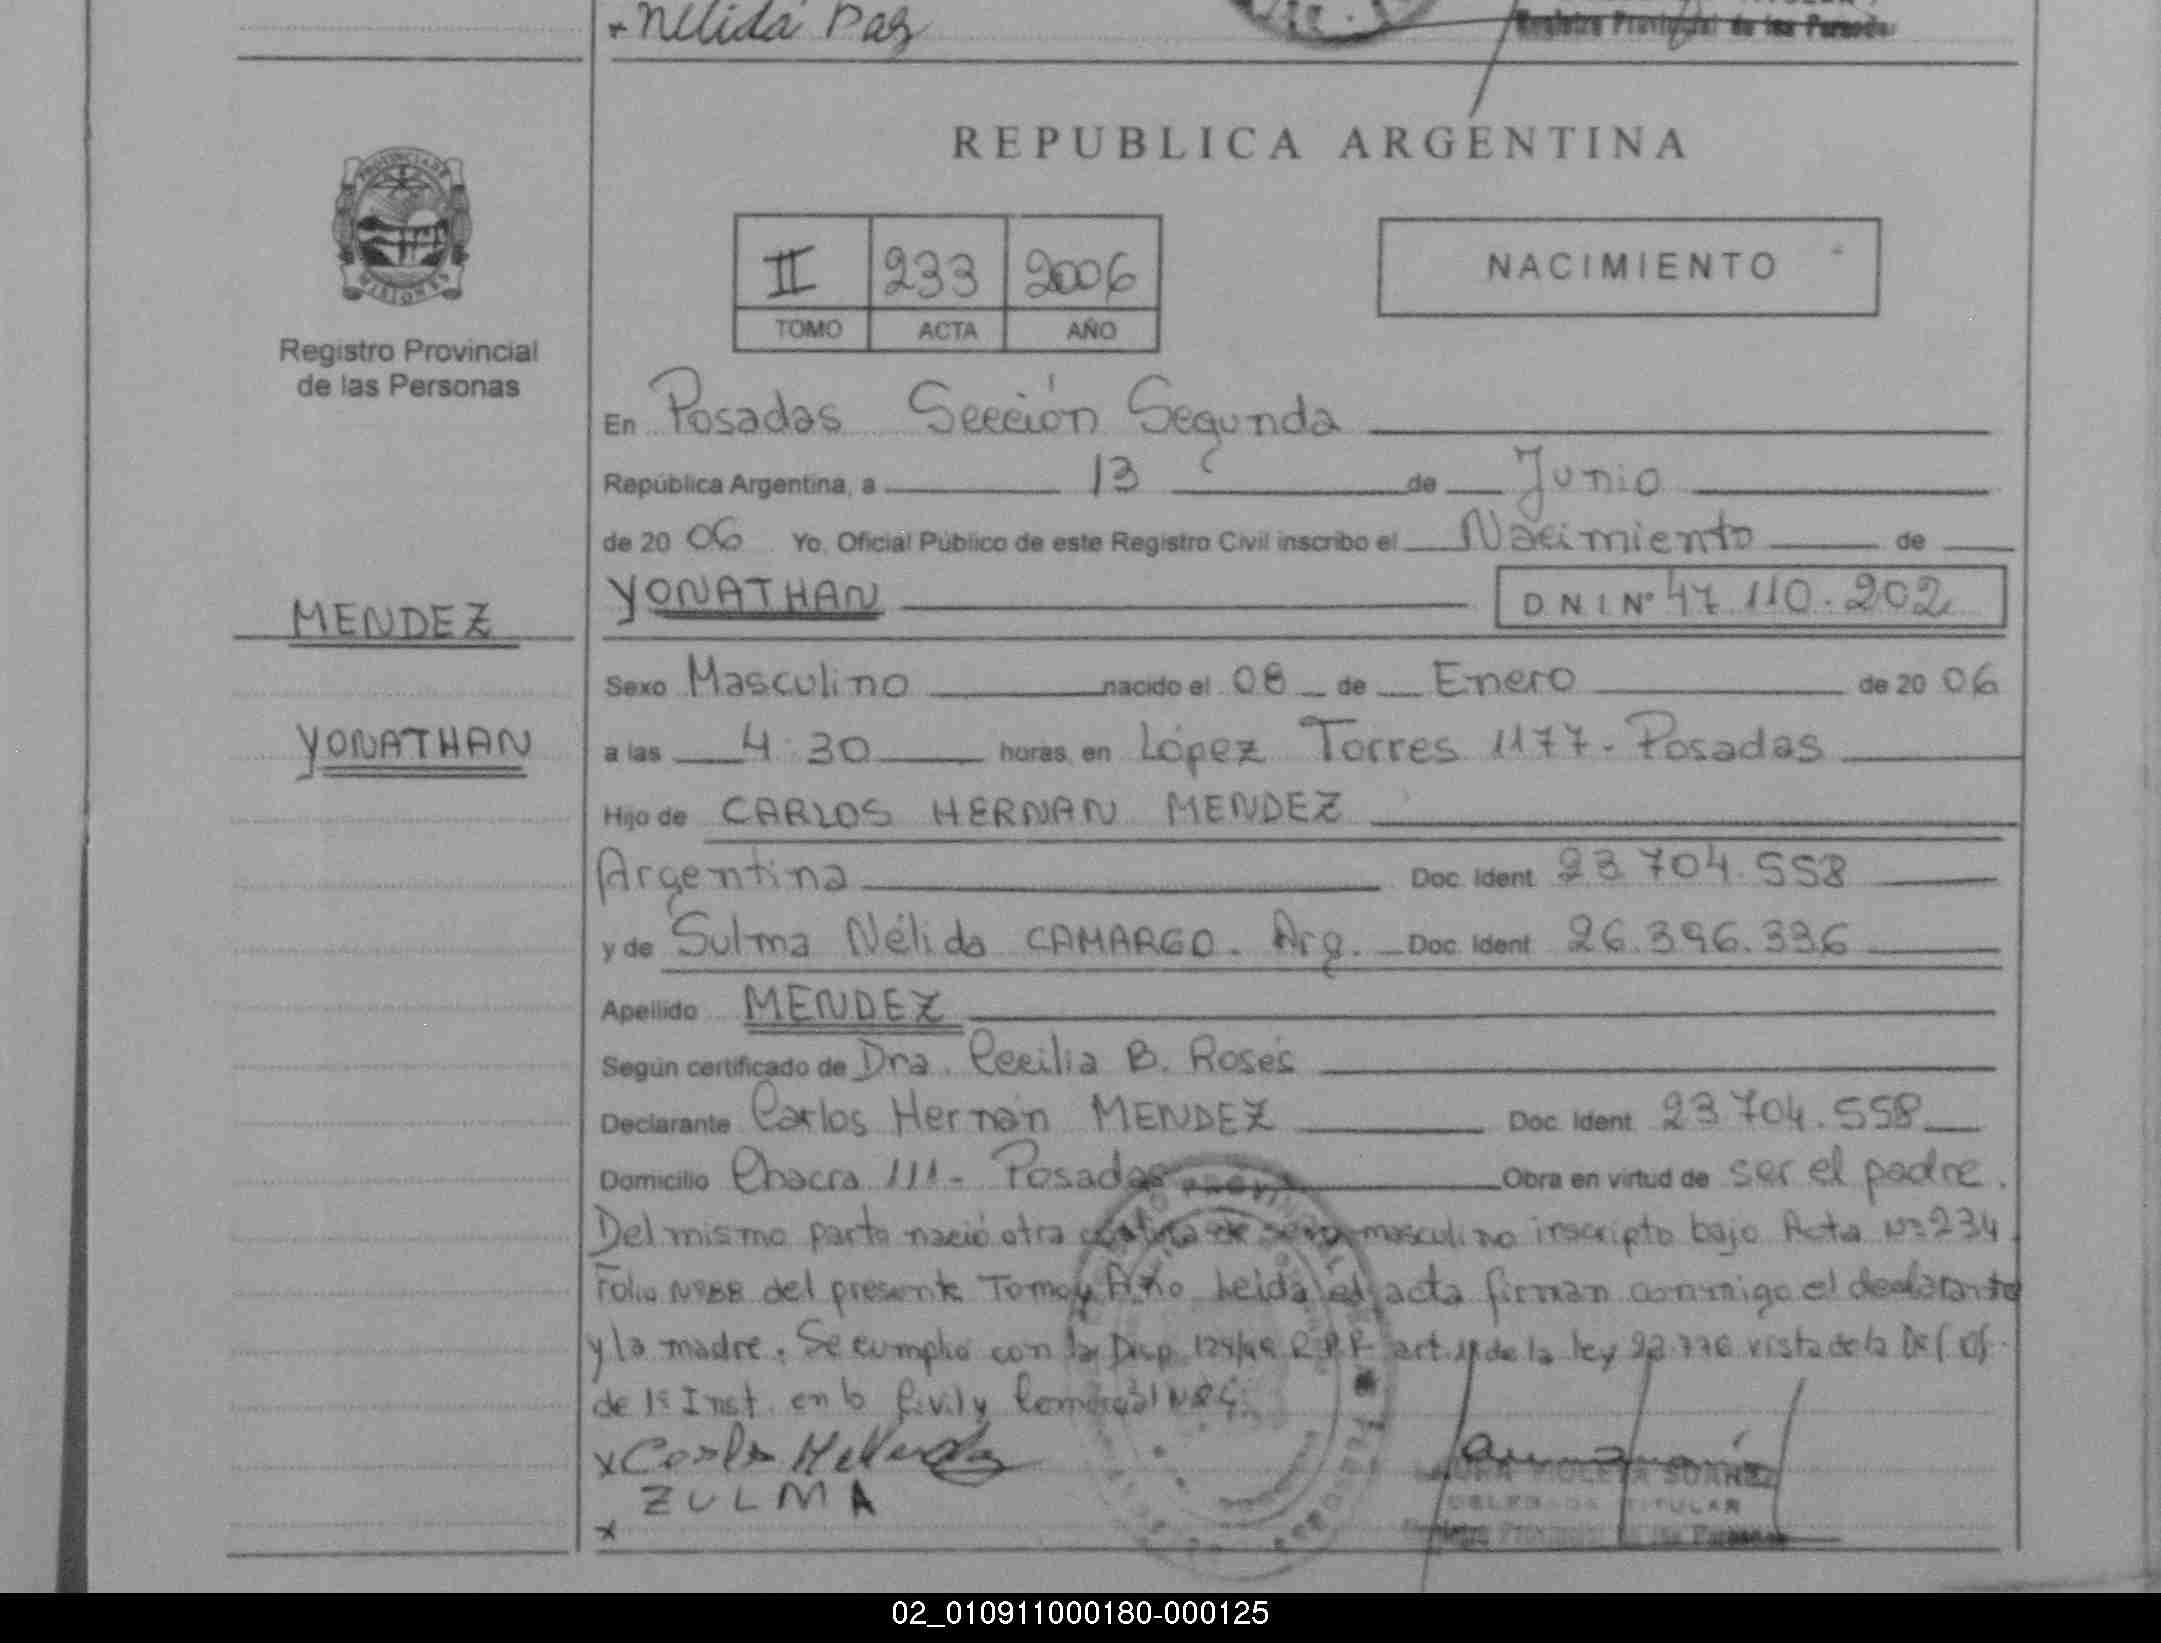 Nélida Paz
Registro Provincial de las Personas
REPUBLICA ARGENTINA
PROVINCIA DE
MISIONES
Registro Provincial
de las Personas
II 233 2006
TOMO ACTA AÑO
NACIMIENTO
En Posadas Sección Segunda
República Argentina, a 13 de Junio
de 20 06 Yo, Oficial Público de este Registro Civil inscribo el Nacimiento de
MENDEZ
YONATHAN
D N I Nº 47.110.202
Sexo Masculino nacido el 08 de Enero de 20 06
YONATHAN
a las 4:30 horas, en López Torres 1177- Posadas
Hijo de CARLOS HERNAN MENDEZ
Argentina Doc. Ident. 23.704.558
y de Sulma Nélida CAMARGO. Arg. Doc. Ident. 26.396.336
Apellido MENDEZ
Según certificado de Dra. Cecilia B. Rosés
Declarante Carlos Hernán MENDEZ Doc. Ident. 23.704.558
Domicilio Chacra 111- Posadas Obra en virtud de ser el padre.
Del mismo parto nació otra de sexo masculino inscripto bajo Acta Nº 234
Folio Nº 88 del presente Tomo y Año. Leída el acta firman conmigo el declarante
y la madre. Se cumplió con la Disp. R.P.P. art. de la ley vista de la
de 1ª Inst. en lo Civil y Comercial
x Carlos
ZULMA
x
LAURA VIOLETA SUAREZ
DELEGADA TITULAR
Registro Provincial de las Personas
02_010911000180-000125